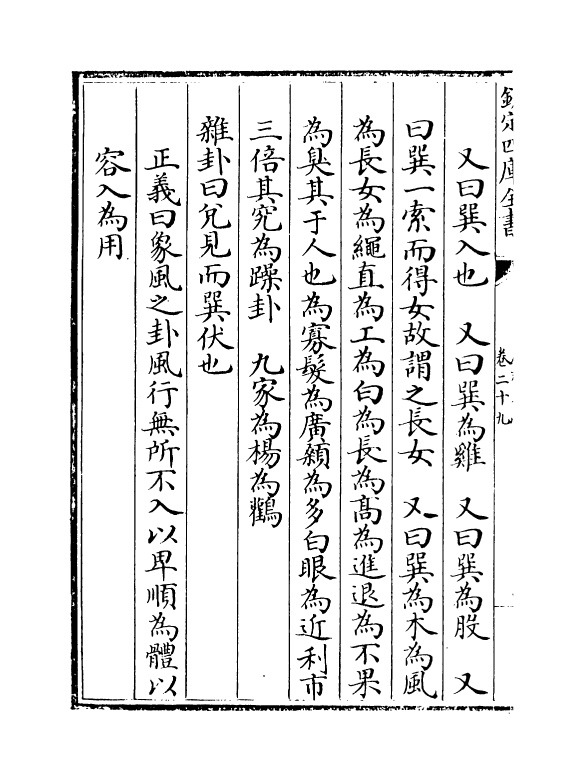 欽定四庫全書
卷二十九
又曰巽入也　又曰巽為雞　又曰巽為股　又
曰巽一索而得女故謂之長女　又曰巽為木為風
為長女為繩直為工為白為長為高為進退為不果
為臭其于人也為寡髮為廣顙為多白眼為近利市
三倍其究為躁卦　九家為楊為鸛
雜卦曰兌見而巽伏也
正義曰象風之卦風行無所不入以卑順為體以
容入為用